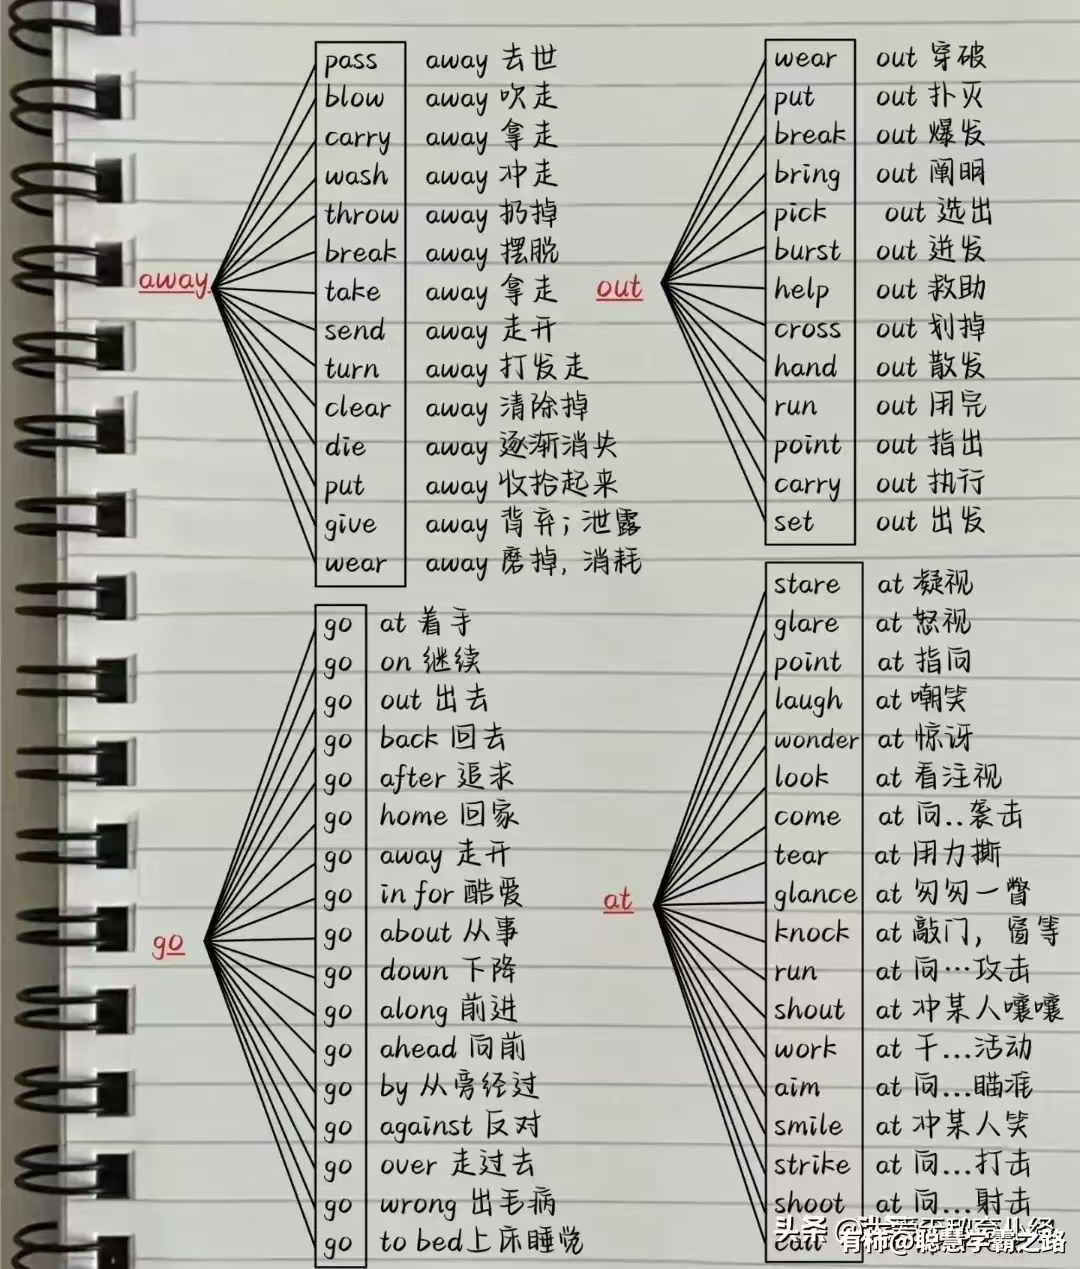 away
pass away 去世
blow away 吹走
carry away 拿走
wash away 冲走
throw away 扔掉
break away 摆脱
take away 拿走
send away 走开
turn away 打发走
clear away 清除掉
die away 逐渐消失
put away 收拾起来
give away 背弃；泄露
wear away 磨掉，消耗
out
wear out 穿破
put out 扑灭
break out 爆发
bring out 阐明
pick out 选出
burst out 迸发
help out 救助
cross out 划掉
hand out 散发
run out 用完
point out 指出
carry out 执行
set out 出发
go
go at 着手
go on 继续
go out 出去
go back 回去
go after 追求
go home 回家
go away 走开
go in for 酷爱
go about 从事
go down 下降
go along 前进
go ahead 向前
go by 从旁经过
go against 反对
go over 走过去
go wrong 出毛病
go to bed 上床睡觉
at
stare at 凝视
glare at 怒视
point at 指向
laugh at 嘲笑
wonder at 惊讶
look at 看注视
come at 向..袭击
tear at 用力撕
glance at 匆匆一瞥
knock at 敲门，窗等
run at 向…攻击
shout at 冲某人嚷嚷
work at 干...活动
aim at 向...瞄准
smile at 冲某人笑
strike at 向...打击
shoot at 向...射击
call
头条 @
有柿@聪慧学霸之路